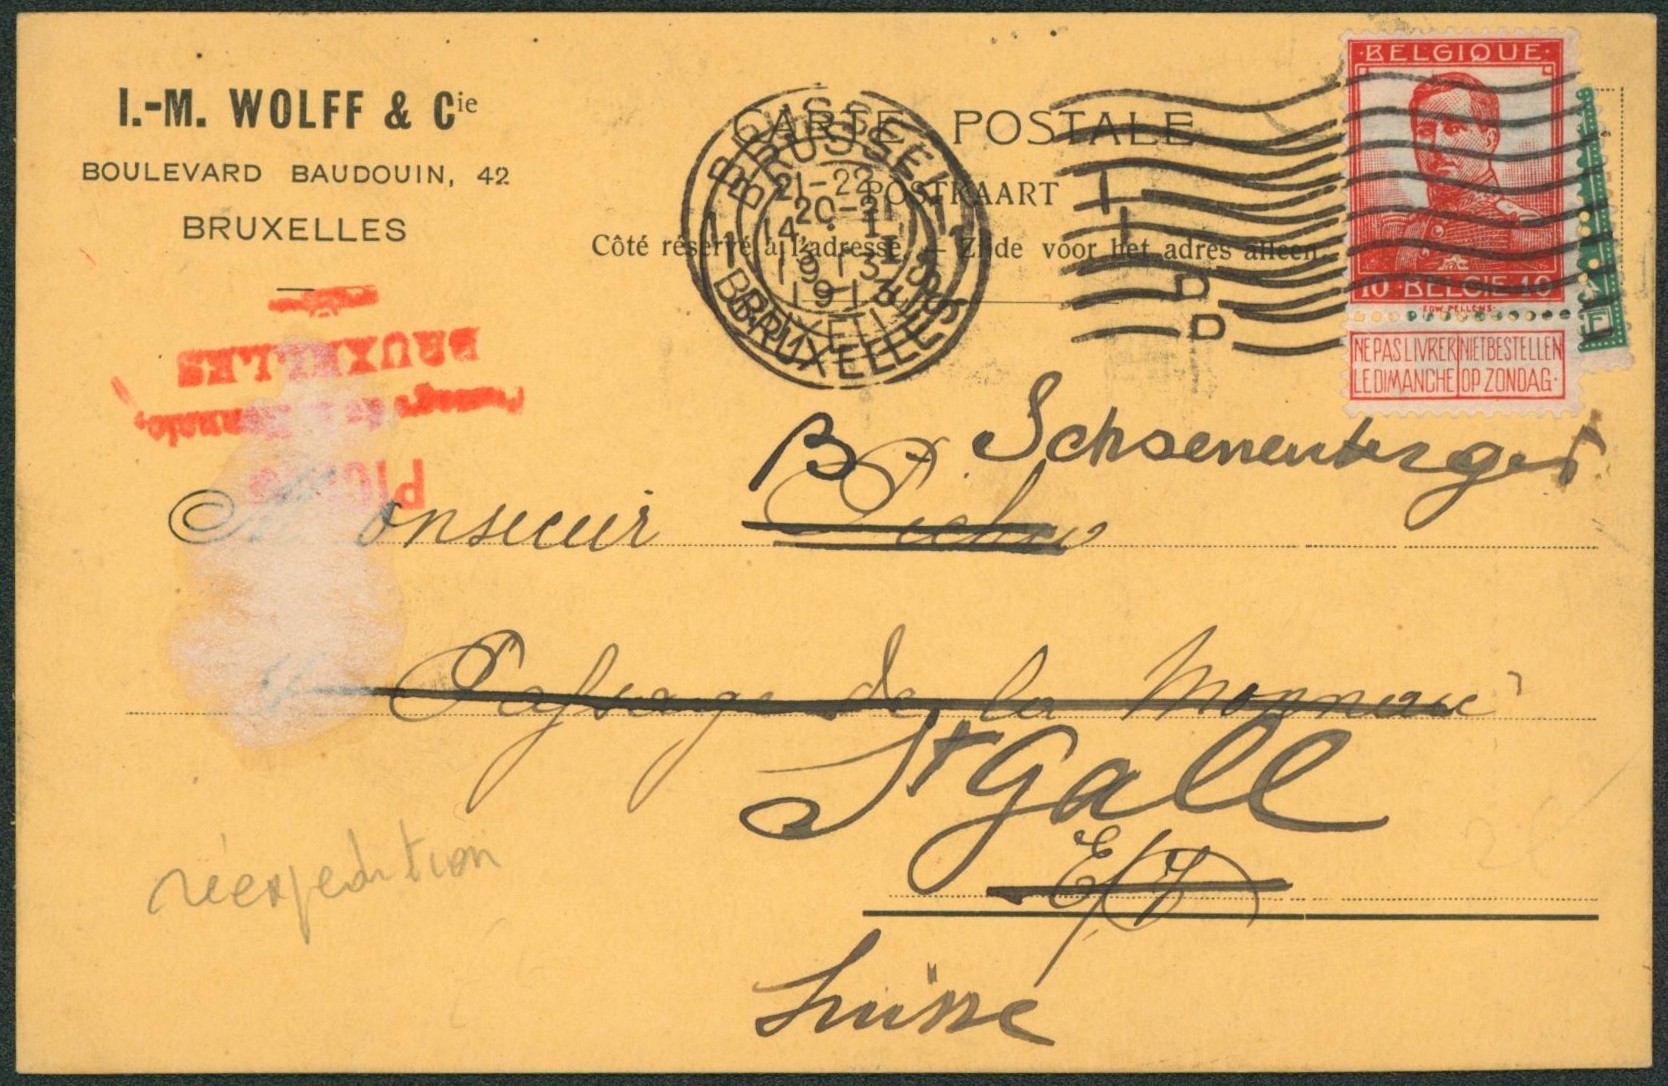 I.-M. WOLFF & Cie
BOULEVARD BAUDOUIN, 42
BRUXELLES
CARTE POSTALE
POSTKAART
Côté réservé à l'adresse. — Zijde voor het adres alleen.
BRUSSEL
BRUSSEL
21-22
20-21
14
1913
1913
1
1
BRUXELLES
BRUXELLES
D
D
BELGIQUE
10 BELGIE 10
NE PAS LIVRER LE DIMANCHE
NIET BESTELLEN OP ZONDAG.
BRUXELLES
Passage de la Monnaie,
B. Schoenenberger
Monsieur
Passage de la Monnaie
St Gall
E/V
Suisse
réexpédition